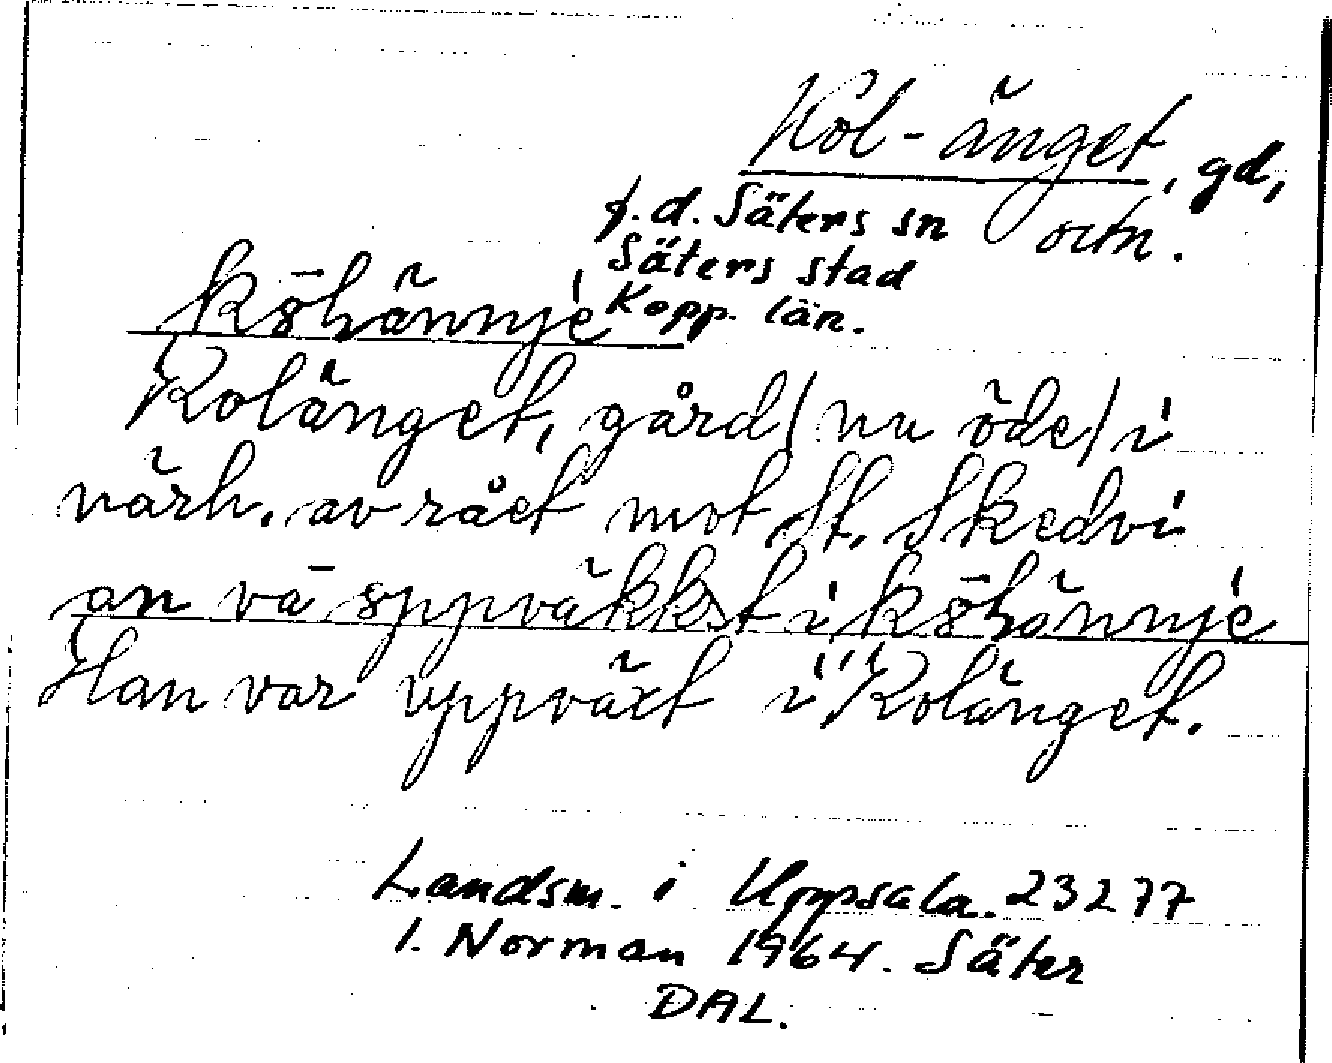 Kol-änget, gd,
f.d. Säters sn ortn.
Säters stad
Kopp. län.
kōhännje
Kolänget, gård (nu öde) i
närh. av rået mot St. Skedvi
an vā oppväkkst i kōhännje
Han var uppväxt i "Kolänget.
Landsm. i Uppsala. 23277
I. Norman 1964. Säter
DAL.